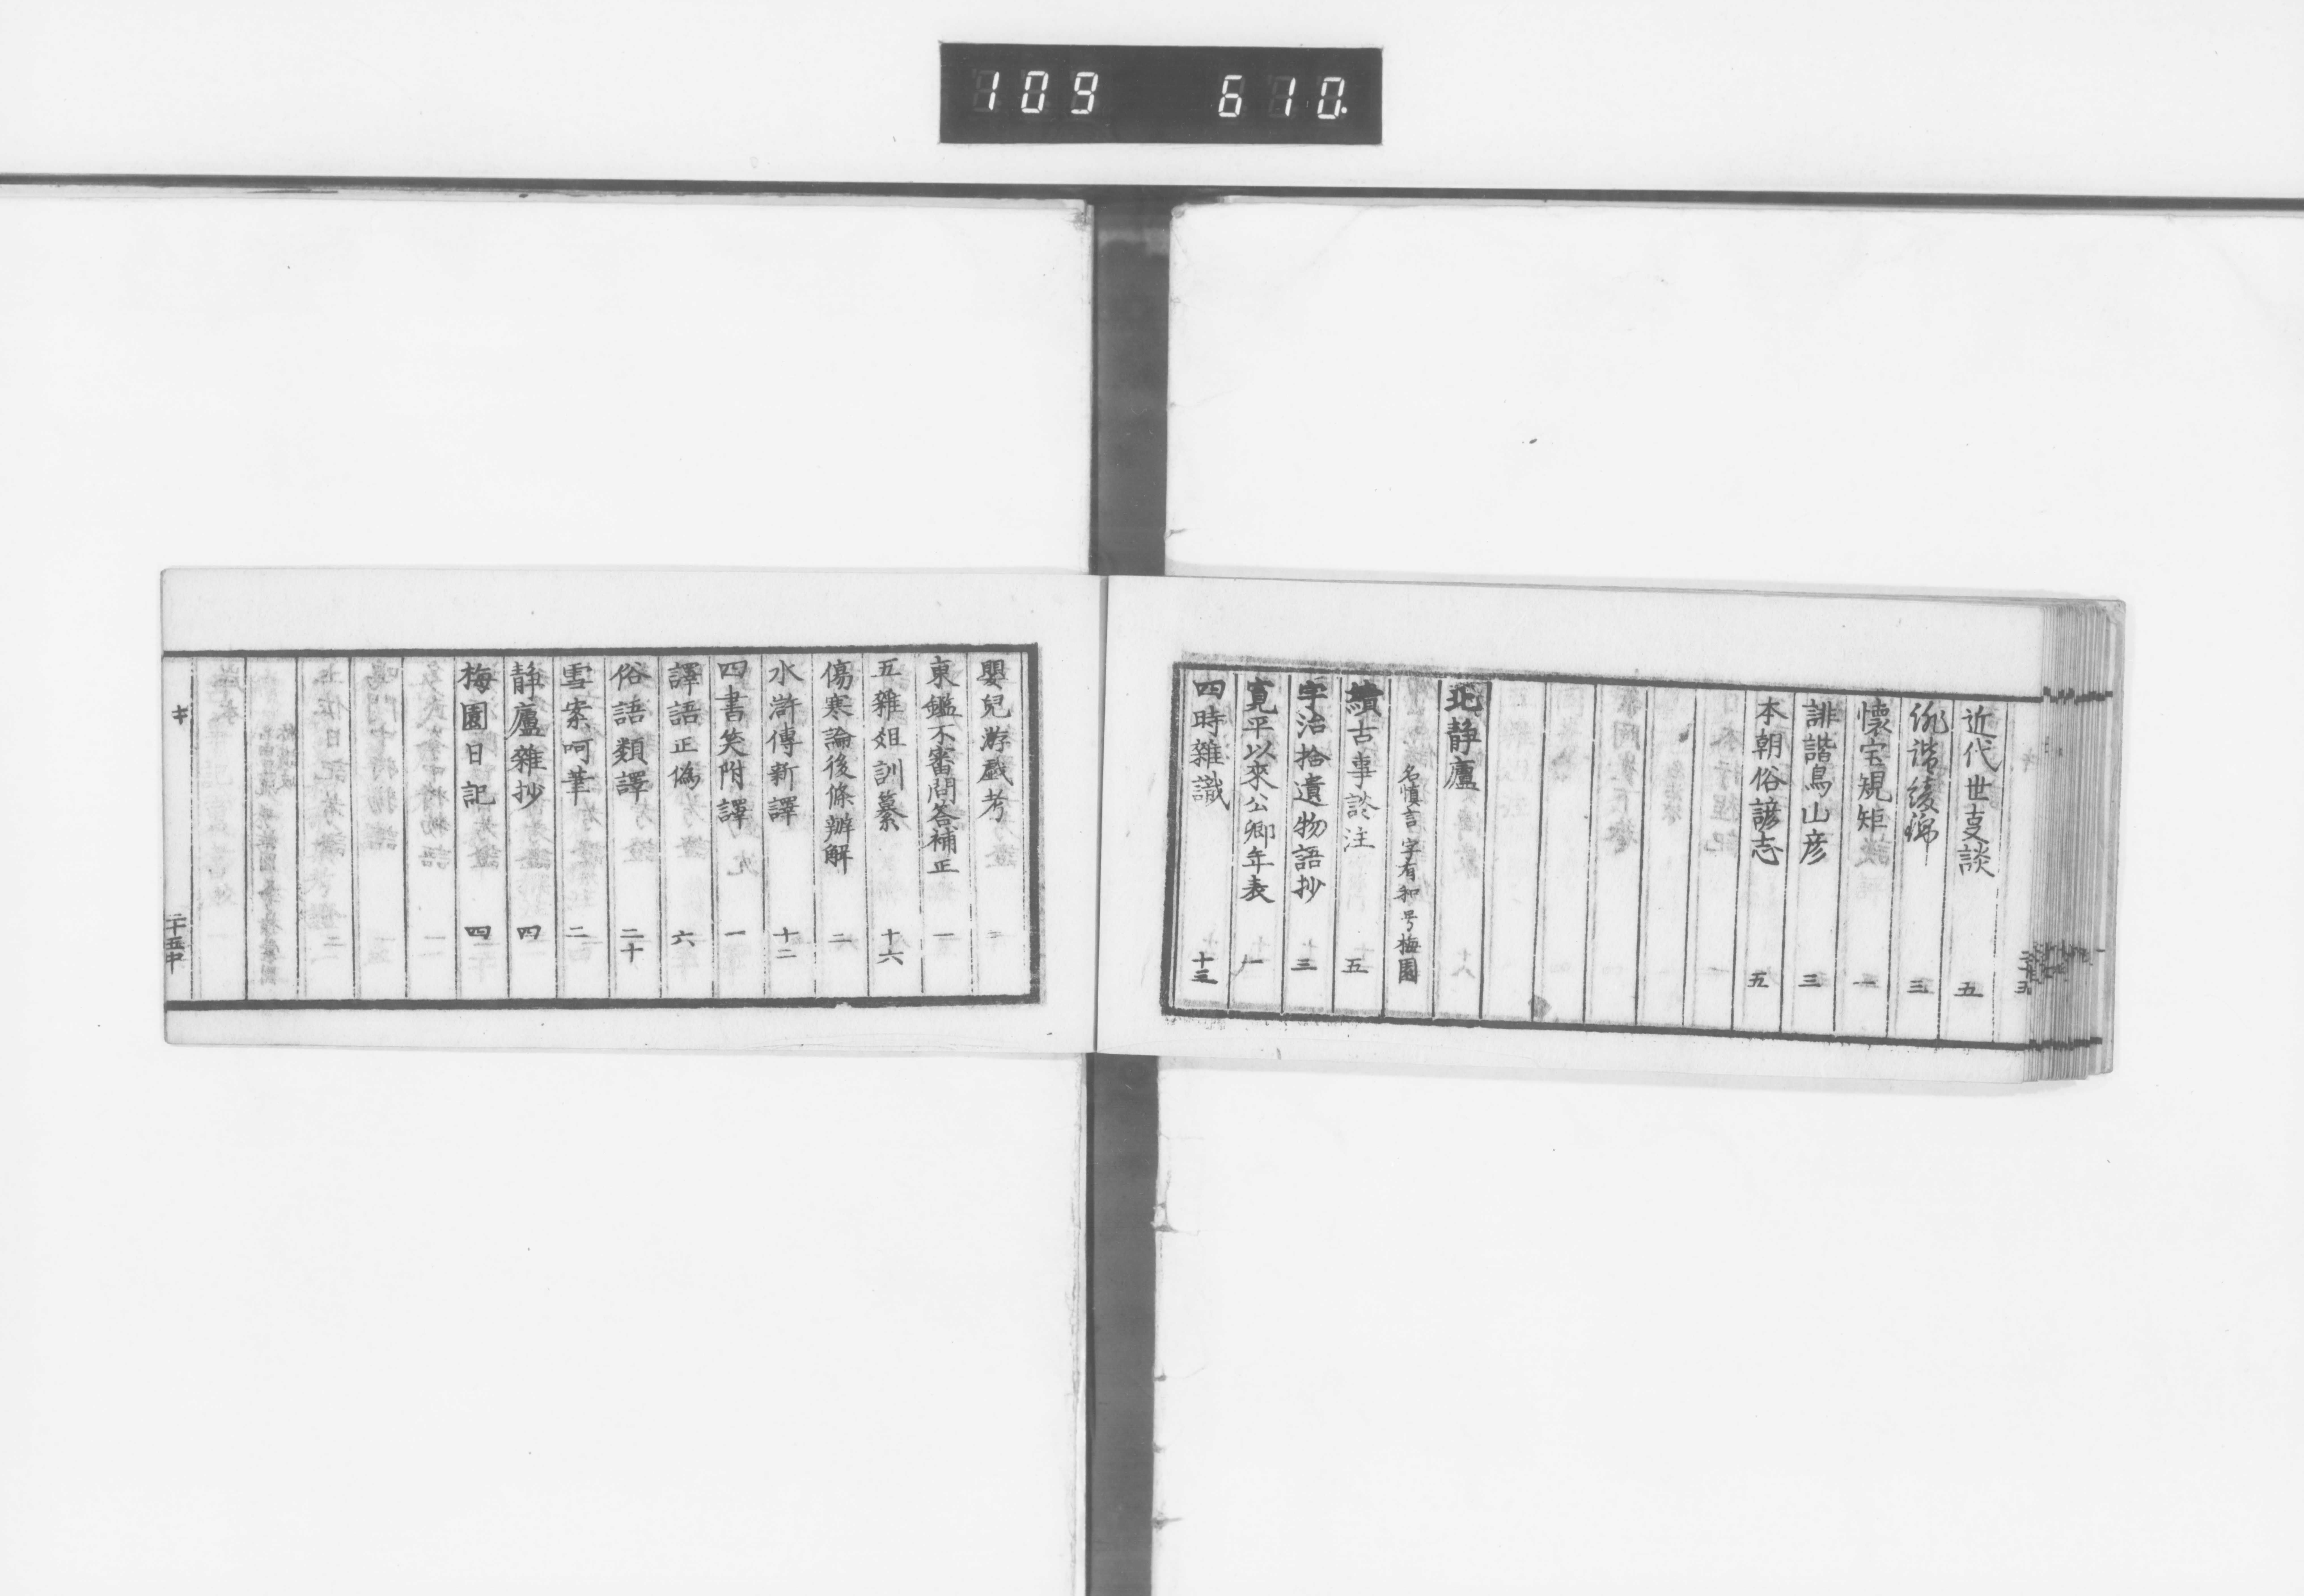 109 610.
近代世支談 五
誹諧綾錦 三
懐宝規矩 一
誹諧鳥山彦 三
本朝俗諺志 五
北静廬
名慎言 字有和 号梅園
續古事談注 五
宇治拾遺物語抄 三
寛平以來公卿年表 一
四時雜識 十三
嬰兒游戯考
東鑑不審問答補正 一
五雜俎訓纂 十六
傷寒論後條辧解 二
水滸傳新譯 十二
四書笑附譯 一
譯語正偽 六
俗語類譯 二十
雪案呵筆 二
静廬雜抄 四
梅園日記 四
キ
二十五中